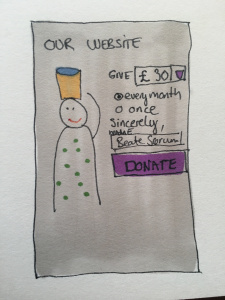 OUR WEBSITE
GIVE £ 30
every month
once
Sincerely,
NAME
Beate Sørum
DONATE